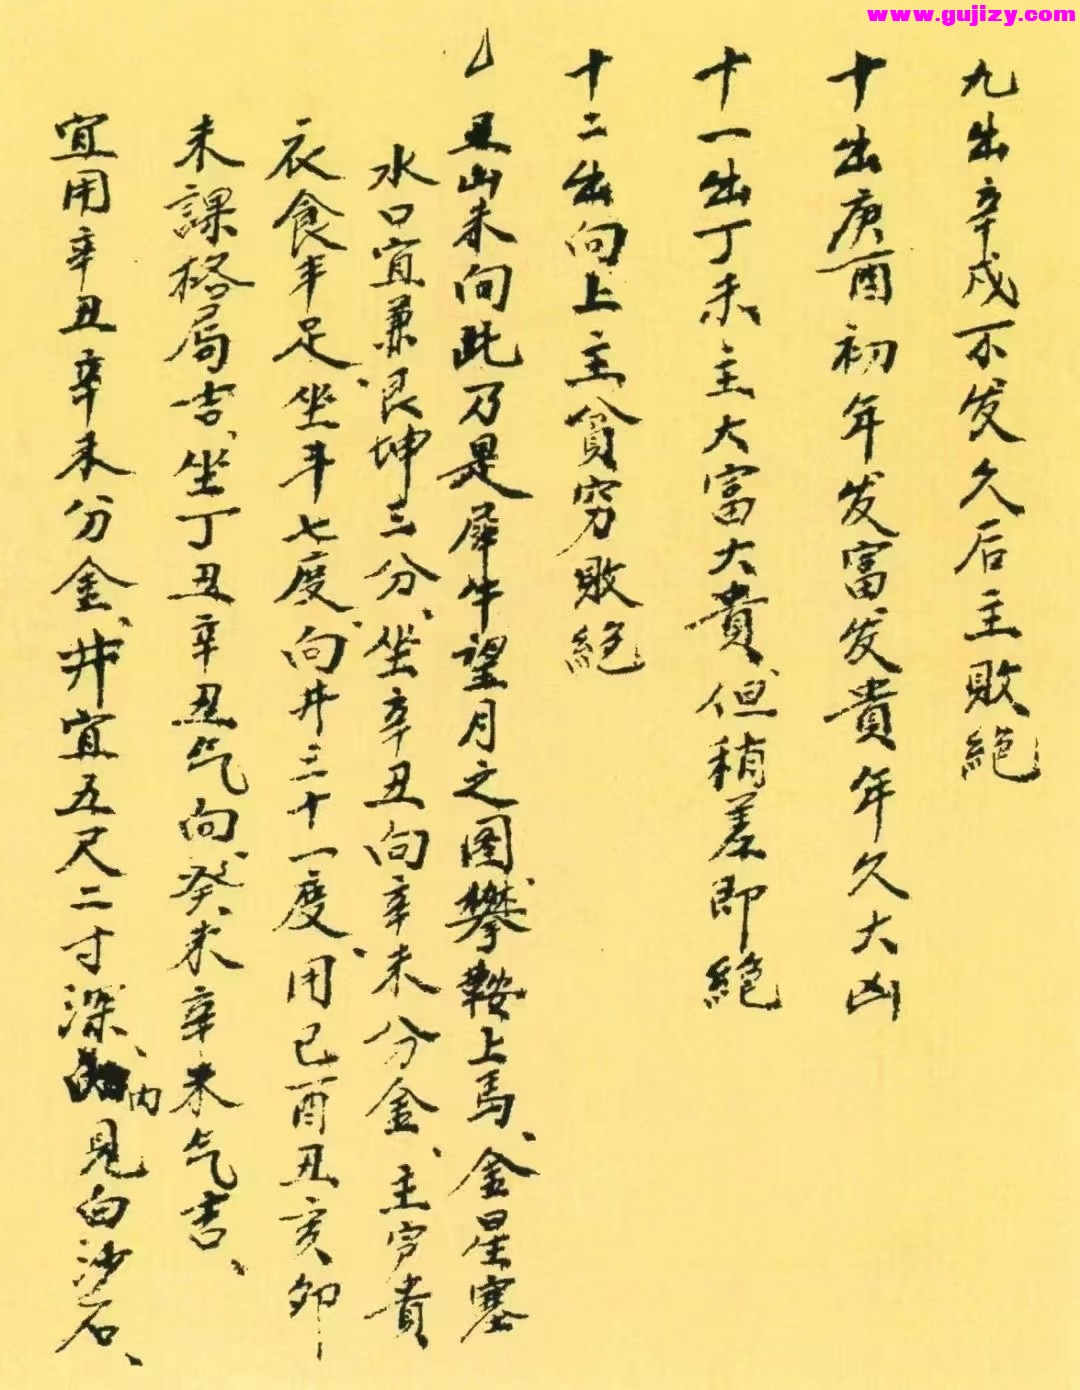 www.gujizy.com
九出辛戍不发久后主敗絕
十出庚酉初年发富发貴年久大凶
十一出丁未主大富大貴、但稍差即絕
十二出向上主貧穷敗絕
丑山未向此乃是犀牛望月之图、攀鞍上馬、金星塞
水口宜兼艮坤三分、坐辛丑向辛未分金、主富貴
衣食丰足、坐斗七度、向井三十一度、用巳酉丑亥卯
未課格局吉、坐丁丑辛丑气向癸未辛未气吉、
宜用辛丑辛未分金、井宜五尺二寸深、内見白沙石、